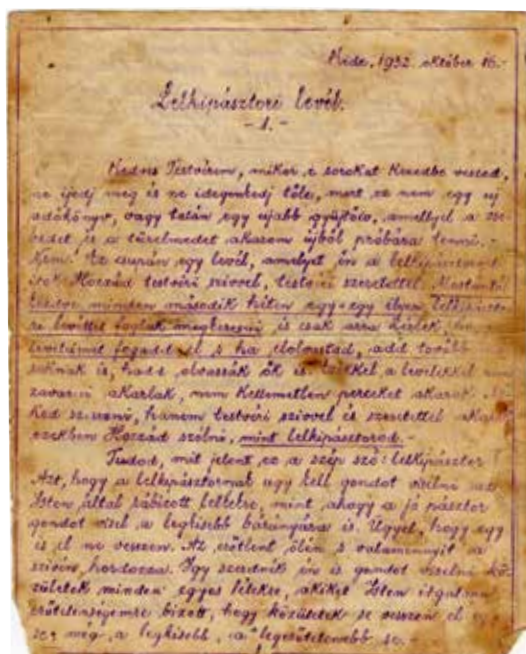 Kide, 1932 október 16.-
Lelkipásztori levél.
- 1. -
Kedves Testvérem, mikor e sorokat Kezedbe veszed,
ne ijedj meg és ne idegenkedj tőle, mert ez nem egy új
adókönyv, vagy talán egy újabb gyűjtőív, amellyel a zse-
bedet és a türelmedet akarom újból próbára tenni. -
Nem! Ez csupán egy levél, amelyet én a lelkipásztorod
írok Hozzád testvéri szívvel, testvéri szeretettel. Mostantól
kezdve minden második héten egy-egy ilyen lelkipászto-
ri levéllel foglak megkeresni és csak arra kérlek, hogy
levelemet fogadd el s ha elolvastad, add tovább
soknak is, hadd olvassák ők is. Ezekkel a levelekkel nem
zavarni akarlak, nem kellemetlen perceket akarok
Ked szerezni, hanem testvéri szívvel és szeretettel akarok
ezekben Hozzád szólni, mint lelkipásztorod. -
Tudod, mit jelent ez a szép szó: lelkipásztor?
Azt, hogy a lelkipásztornak úgy kell gondot viselni az
Isten által rábízott lelkekre, mint ahogy a jó pásztor
gondot visel a legkisebb bárányára is. Ügyel, hogy egy
is el ne vesszen. Az erőtlent ölén s valamennyit a
szívén hordozza. Így szeretnék én is gondot viselni kö-
zületek minden egyes lélekre, akiket Isten irgalma
erőtelenségemre bízott, hogy közületek se vesszen el egy
se, még a legkisebb, a legerőtelenebb se. -